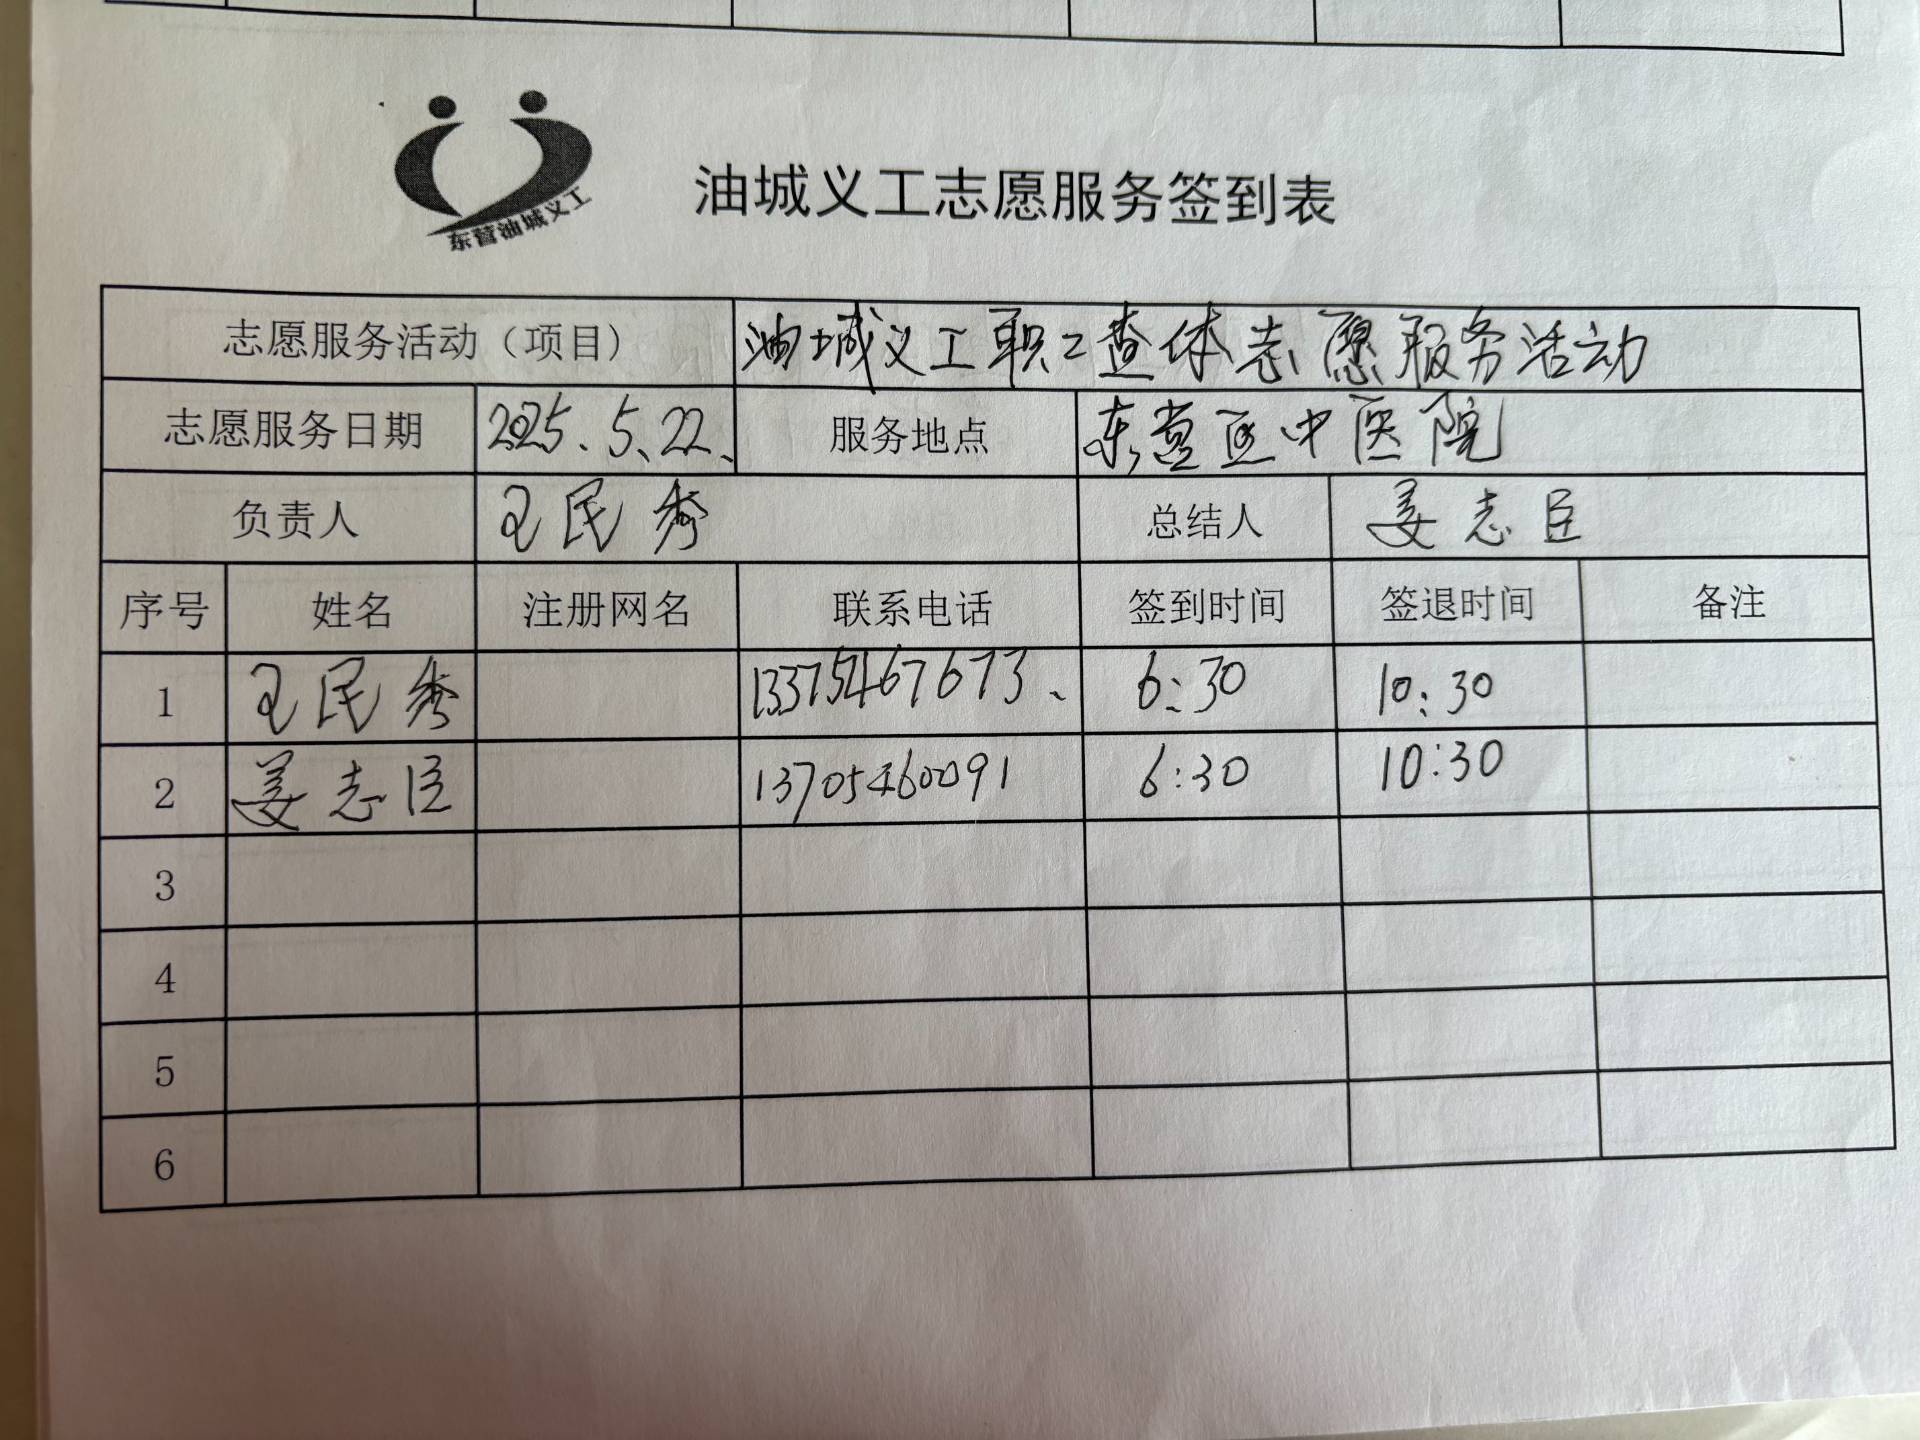 东营油城义工
油城义工志愿服务签到表
志愿服务活动（项目） 油城义工职工查体志愿服务活动
志愿服务日期 2025.5.22. 服务地点 东营区中医院
负责人 王民秀 总结人 姜志臣
序号 姓名 注册网名 联系电话 签到时间 签退时间 备注
1 王民秀 13375467673、 6:30 10:30
2 姜志臣 13705460091 6:30 10:30
3
4
5
6